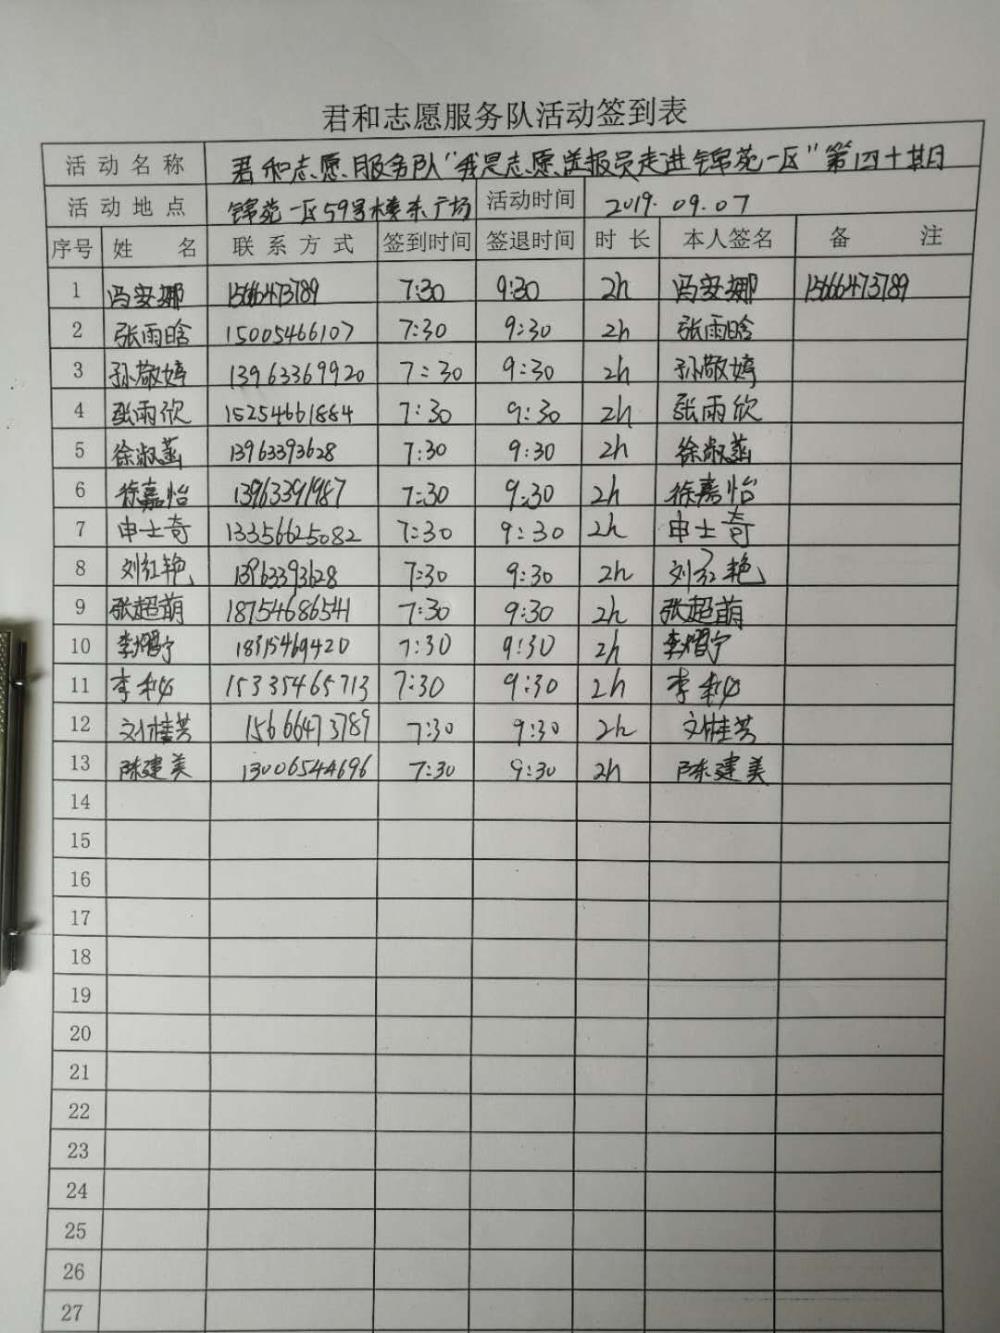 君和志愿服务队活动签到表
活动名称 君和志愿服务队"我是志愿送报员走进锦苑一区"第四十期
活动地点 锦苑一区59号楼东广场 活动时间 2019.09.07
序号 姓名 联系方式 签到时间 签退时间 时长 本人签名 备注
1 冯安娜 15666473789 7:30 9:30 2h 冯安娜 15666473789
2 张雨晗 15005466107 7:30 9:30 2h 张雨晗
3 孙敬婷 13963369920 7:30 9:30 2h 孙敬婷
4 张雨欣 15254661884 7:30 9:30 2h 张雨欣
5 徐淑菡 13963393628 7:30 9:30 2h 徐淑菡
6 徐嘉怡 13963391987 7:30 9:30 2h 徐嘉怡
7 申士奇 13356625082 7:30 9:30 2h 申士奇
8 刘红艳 13963393628 7:30 9:30 2h 刘红艳
9 张超萌 18754686541 7:30 9:30 2h 张超萌
10 李熠宁 18315469420 7:30 9:30 2h 李熠宁
11 李 15335465713 7:30 9:30 2h 李
12 刘桂芳 15666473789 7:30 9:30 2h 刘桂芳
13 陈建美 13006544696 7:30 9:30 2h 陈建美
14
15
16
17
18
19
20
21
22
23
24
25
26
27